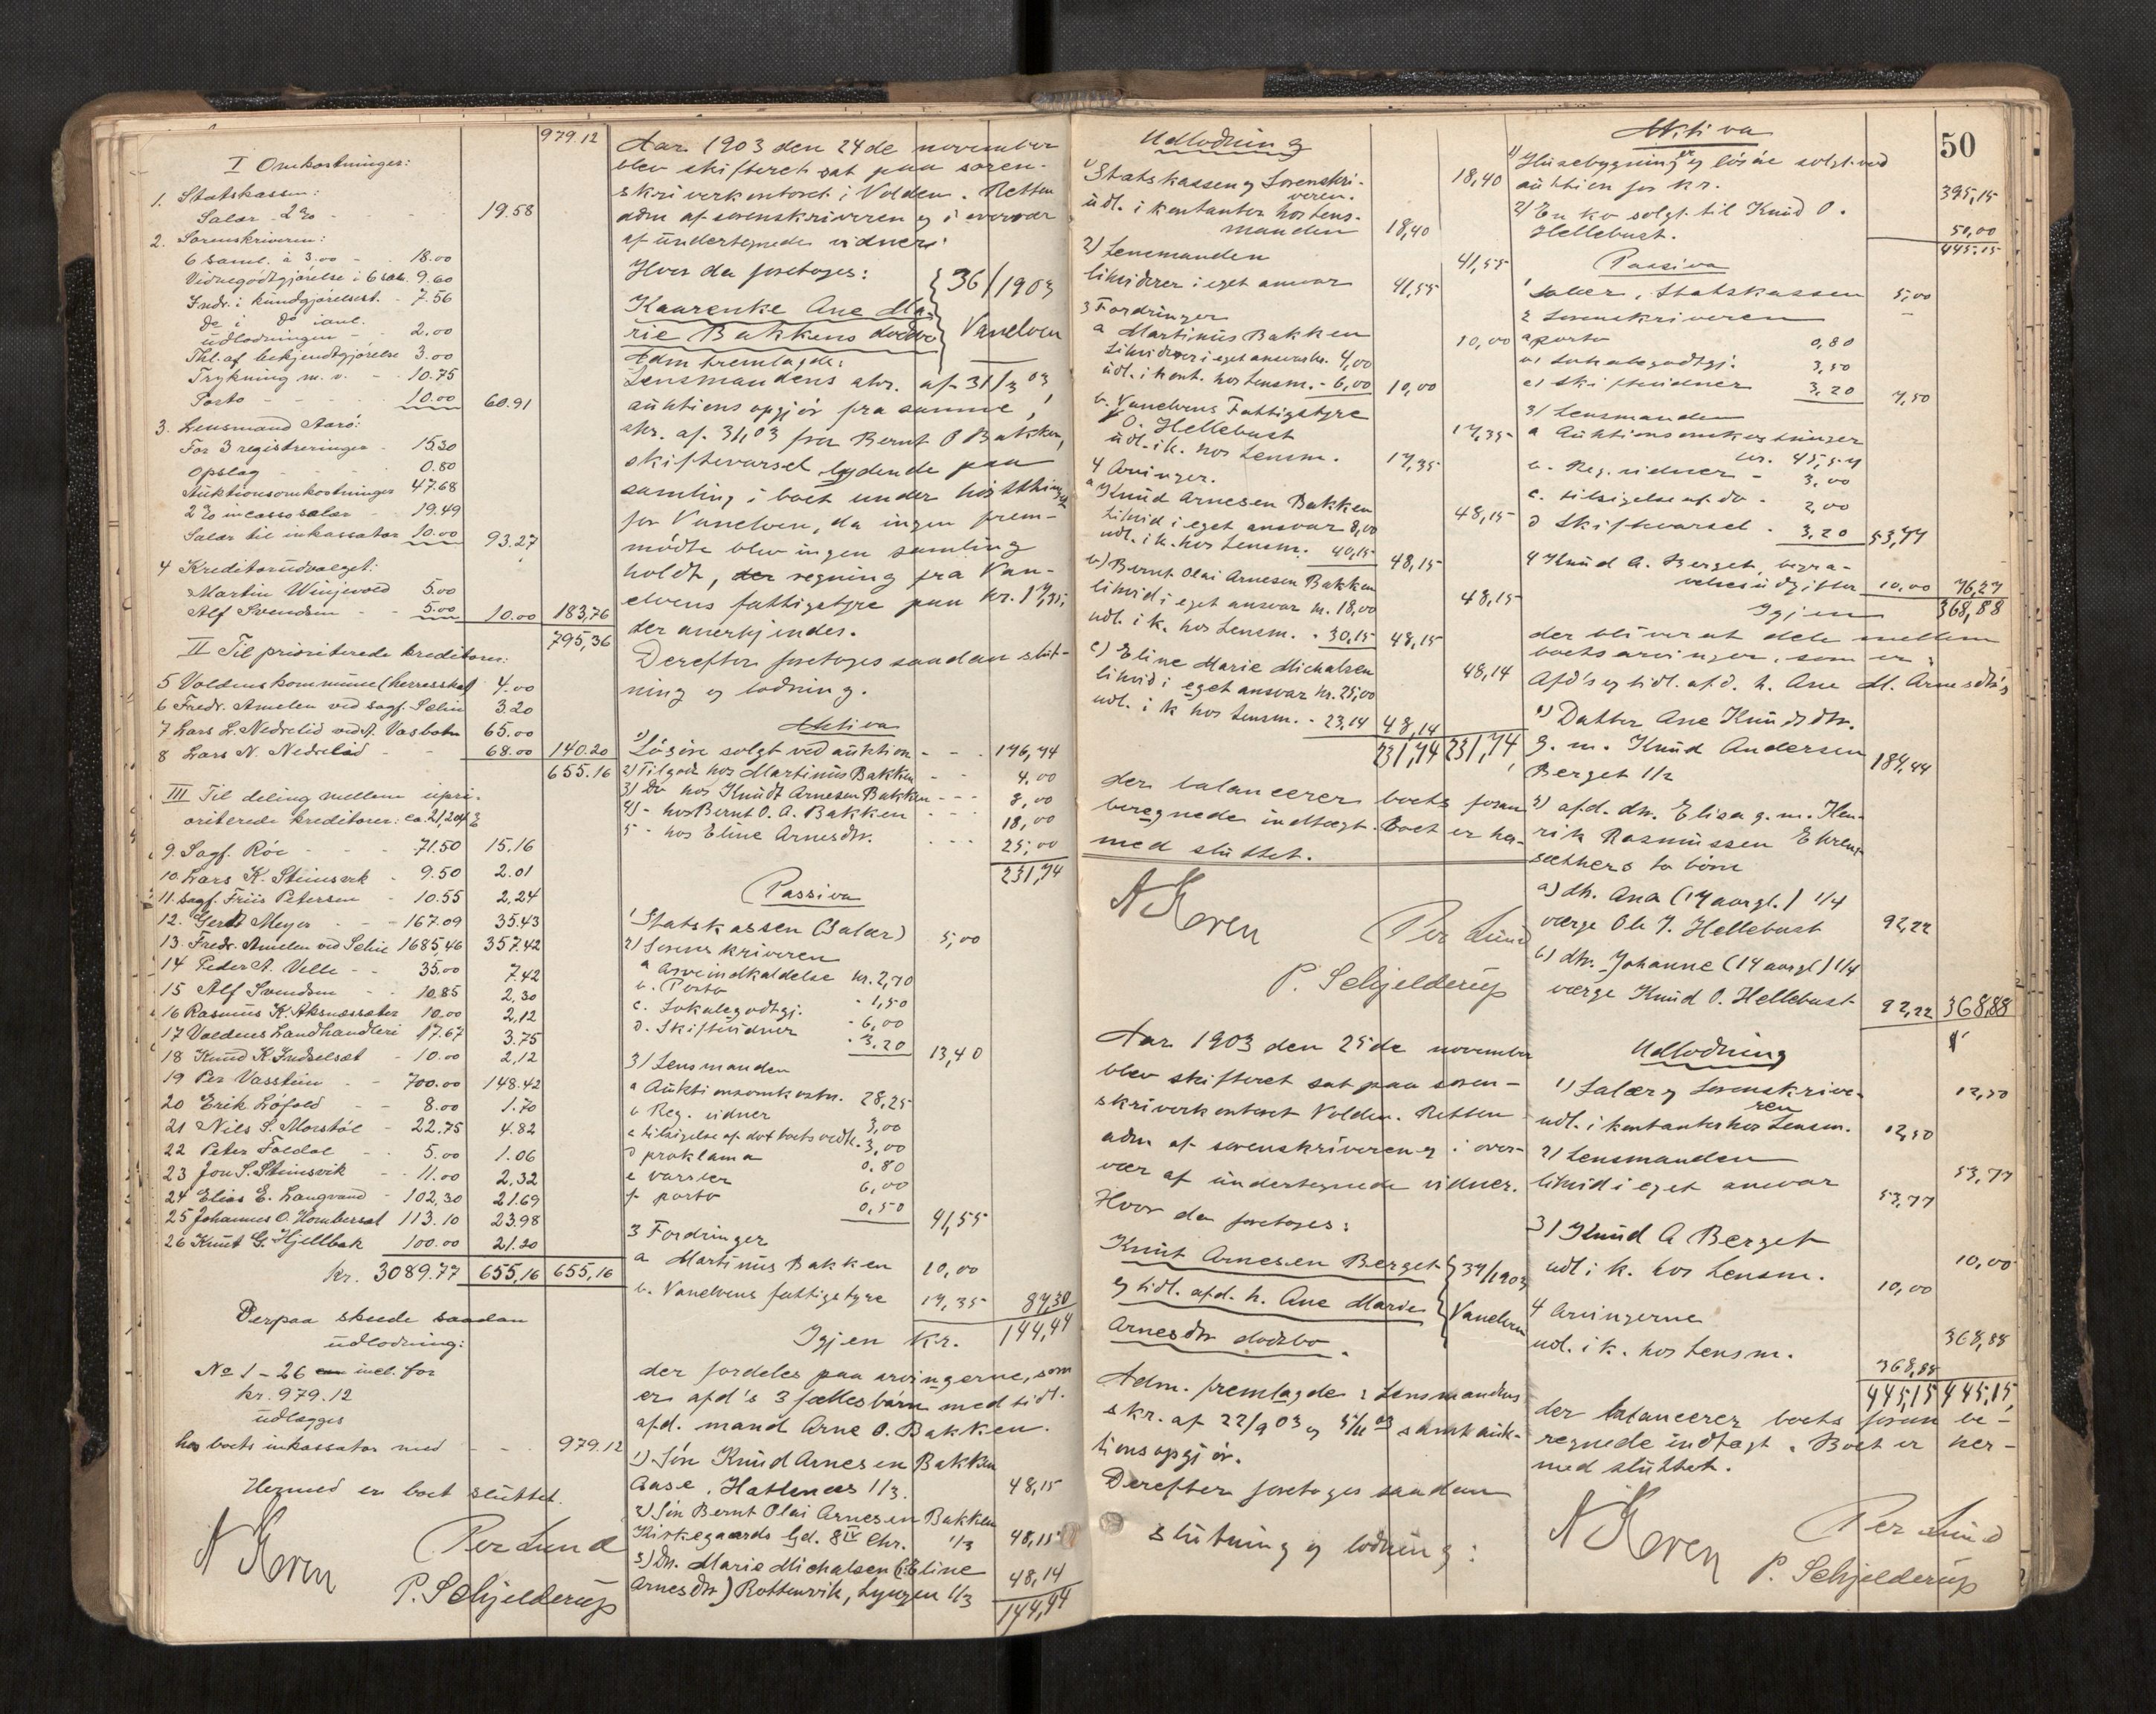 979.12
I Omkostninger:
1. Statskassen:
Salær 2% - - - 19.58
2. Sorenskriveren:
6 saml. à 3.00 - 18.00
Vidnegodtgjørelse i 6 sam. 9.60
Indr. i kundgjørelsest. - 7.56
do i do
udlodningen - 2.00
Thl. af bekjendtgjørelse 3.00
Trykning m. v. - 10.75
Porto - - - 10.00 60.91
3. Lensmand Aarö:
For 3 registreringer - 15.30
Opslag - - - 0.80
Auktionsomkostninger 47.68
2% incassosalær - 19.49
Salær til inkassator 10.00 93.27
4 Kreditorudvalget:
Martin Winjevold 5.00
Alf Svendsen - - 5.00 10.00 183,76
795,36
II Til prioriterede kreditorer:
5 Voldens kommune (herresskat) 4.00
6 Fredr. Amelen ved sagf. Selin 3.20
7 Lars L. Nedrelid ved A. Vasbotn 65.00
8 Lars N. Nedrelid - - 68.00 140.20
655.16
III Til deling mellem upri-
oriterede kreditorer: ca. 21,204 %
9. Sagf. Röe - - - 71.50 15.16
10. Lars K. Steinsvik - 9.50 2.01
11. Sagf. Friis Petersen - 10.55 2,24
12. Gerdt Meyer - - 167.09 35.43
13. Fredr. Amelen ved Selin 1685,46 357.42
14 Peder A. Velle - - 35.00 7.42
15 Alf Svendsen - - 10,85 2,30
16 Rasmus K. Aksnessæter 10.00 2,12
17 Voldens Landhandleri 17.67 3.75
18 Knud K. Indselset - 10.00 2,12
19 Per Vasstein - - 700.00 148.42
20 Erik Löfold - - 8.00 1.70
21 Nils S. Morstöl - 22.75 4.82
22 Peter Foldal - - 5.00 1.06
23 Jon S. Steinsvik - - 11.00 2,32
24 Elias E. Langvand - 102,30 21.69
25 Johannes O. Hornberset 113.10 23.98
26 Knut G. Hjellbak 100.00 21.20
kr. 3089.77 655,16 655,16
Derpaa skede saadan
udlodning:
No 1 - 26 incl. for
kr. 979.12
udlægges
hos boets inkassator med - - 979.12
Hermed er boet sluttet.
A Koren
Per Lund
P. Schjelderup
Aar 1903 den 24de november
blev skifteret sat paa soren-
skriverkontoret i Volden. Retten
adm af sorenskriveren og i overvær
af undertegnede vidner:
Hvor da foretoges:
Kaarenke Ane Ma-
rie Bakkens dødsbo
36/1903
Vanelven
Adm fremlagde:
Lensmandens skr. af 31/3 03,
auktionsopgjör fra samme,
skr. af 31/ 03 fra Bernt O Bakken,
skiftevarsel lydende paa
samling i boet under høstthinget
for Vanelven, da ingen frem-
mødte blev ingen samling
holdt, der regning fra Van-
elvens fattigstyre paa kr. 17,35
der anerkjendes.
Derefter foretoges saadan slut-
ning og lodning.
Aktiva
1) Løsøre solgt ved auktion - - 176,74
2) Tilgode hos Martinus Bakken - - 4.00
3) Do hos Knudt Arnesen Bakken - - - 8,00
4) - hos Bernt O. A. Bakken - - - 18,00
5 - hos Eline Arnesdtr. - - - 25,00
231,74
Passiva
1 Statskassen (Salær) 5,00
2) Sorenskriveren
a Arveindkaldelse kr. 2,70
b. Porto - 1,50
c. Lokalegodtgj. - 6,00
d. Skiftevidner - 3.20 13,40
3) Lensmanden
a Auktionsomkostn. 28,25
b Reg. vidner 3,00
c tilsigelse af dot boets vedk. 3,00
d proklama 0.80
e varsler 6,00
f porto 0,50 41,55
3 Fordringer
a Martinus Bakken 10,00
b. Vanelvens fattigstyre 17,35 87,30
Igjen kr. 144,44
der fordeles paa arvingerne, som
er afd's 3 fællesbørn med tidl.
afd. mand Arne O. Bakken.
1) Søn Knud Arnesen Bakken
Aase, Hatlenæs 1/3. 48,15
2) Søn Bernt Olai Arnesen Bakken
Kirkegaards Gd. 8IV Chr. 1/3 48,15
3) Dtr. Marie Michalsen (Eline
Arnesdtr) Rottenvik, Lyngen 1/3 48,14
144,44
Udlodning
1) Statskassen og Sorenskri-
veren. 18,40
udl. i kontanter hos lens-
manden 18,40
2) Lensmanden 41,55
likviderer i eget ansvar 41,55
3 Fordringer
a Martinus Bakken 10,00
likviderer i eget ansvar kr. 4,00
udl. i kont. hos Lensm. - 6,00 10,00
b. Vanelvens Fattigstyre
O. Hellebust 17,35
udl. i k. hos Lensm. 17,35
4 Arvinger.
a Knud Arnesen Bakken 48,15
likvid i eget ansvar 8,00
udl. i k. hos Lensm. 40,15 48,15
b) Bernt Olai Arnesen Bakken 48,15
likvid i eget ansvar kr. 18,00
udl. i k. hos Lensm. - 30,15 48,15
c) Eline Marie Michalsen 48,14
likvid i eget ansvar kr. 25,00
udl. i k hos Lensm. - 23,14 48,14
231,74 231,74
der balancerer boets foran
beregnede indtægt. Boet er her-
med sluttet.
A Koren
Per Lund
P. Schjelderup
Aar 1903 den 25de november
blev skifteret sat paa soren-
skriverkontoret Volden. Retten
adm af sorenskriveren og i over-
vær af undertegnede vidner.
Hvor da foretoges:
Knut Arnesen Berget
og tidl. afd. h. Ane Marie
Arnesdtr dødsbo.
37/1903
Vanelven
Adm. fremlagde: Lensmandens
skr. af 22/9 03 og 5/11 03 samt auk-
tionsopgjør.
Derefter foretoges saadan
slutning og lodning:
50
Aktiva
1) Husebygninger og løsøre solgt ved
auktion for kr. 395,15
2) En ko solgt til Knud O.
Hellebust. 50,00
445,15
Passiva
1 Salær, Statskassen 5,00
2 Sorenskriveren
a porto 0,80
b) Lokalegodtgj. 3,50
c) Skiftevidner 3,20 7,50
3) Lensmanden
a Auktionsomkostninger
kr. 45,57
b. Reg. vidner - 3,00
c. tilsigelse af do - 2,00
d Skiftevarsel - 3,20 53,77
4 Knud A. Berget, begra-
velsesudgifter 10,00 76,27
Igjen 368,88
der bliver at dele mellem
boets arvinger, som er:
Afd's og tidl. afd. h. Ane M. Arnesdtr's
1) Datter Ane Knudsdtr.
g. m. Knud Andersen
Berget 1/2 184,44
2) afd. dtr. Elisa g. m. Hen-
rik Rasmussen Ehren-
sæthers to børn
a) dtr. Ana (17 aargl.) 1/4
værge Ole J. Hellebust 92,22
b) dtr. Johanne (14 aargl) 1/4
værge Knud O. Hellebust 92,22 368,88
Udlodning
1) Salær og Sorenskrive-
ren 12,50
udl. i kontanter hos Lensm. 12,50
2) Lensmanden 53,77
likvid i eget ansvar 53,77
3) Knud A Berget 10,00
udl i k. hos Lensm. 10,00
4 Arvingerne 368,88
udl. i k. hos Lensm. 368,88
445,15 445,15,
der balancerer boets foran be-
regnede indtægt. Boet er her-
med sluttet.
A Koren
Per Lund
P. Schjelderup